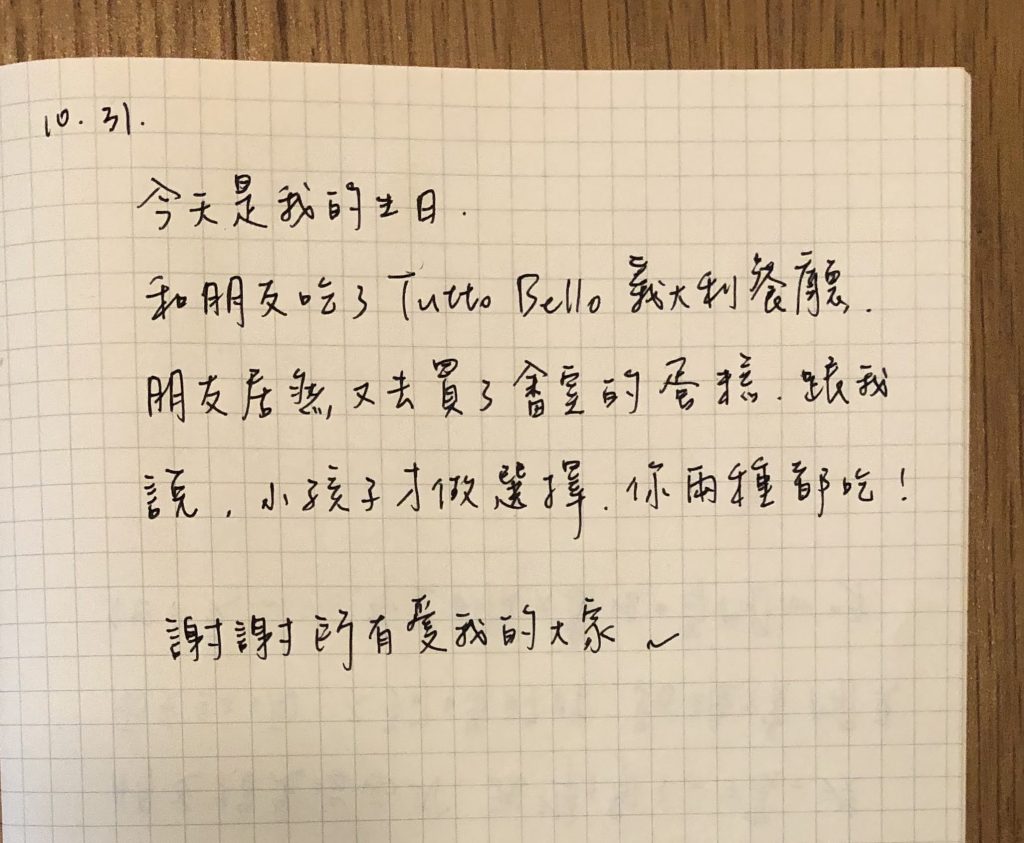 10.31.
今天是我的生日.
和朋友吃了 Tutto Bello 義大利餐廳.
朋友居然又去買了畬室的蛋糕.跟我
說,小孩子才做選擇.你兩種都吃!
謝謝所有愛我的大家~